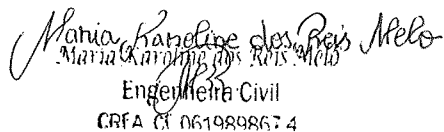 Maria Karoline dos Reis Melo
Maria Karoline dos Reis Melo
Engenheira Civil
CREA CE 061989867-4